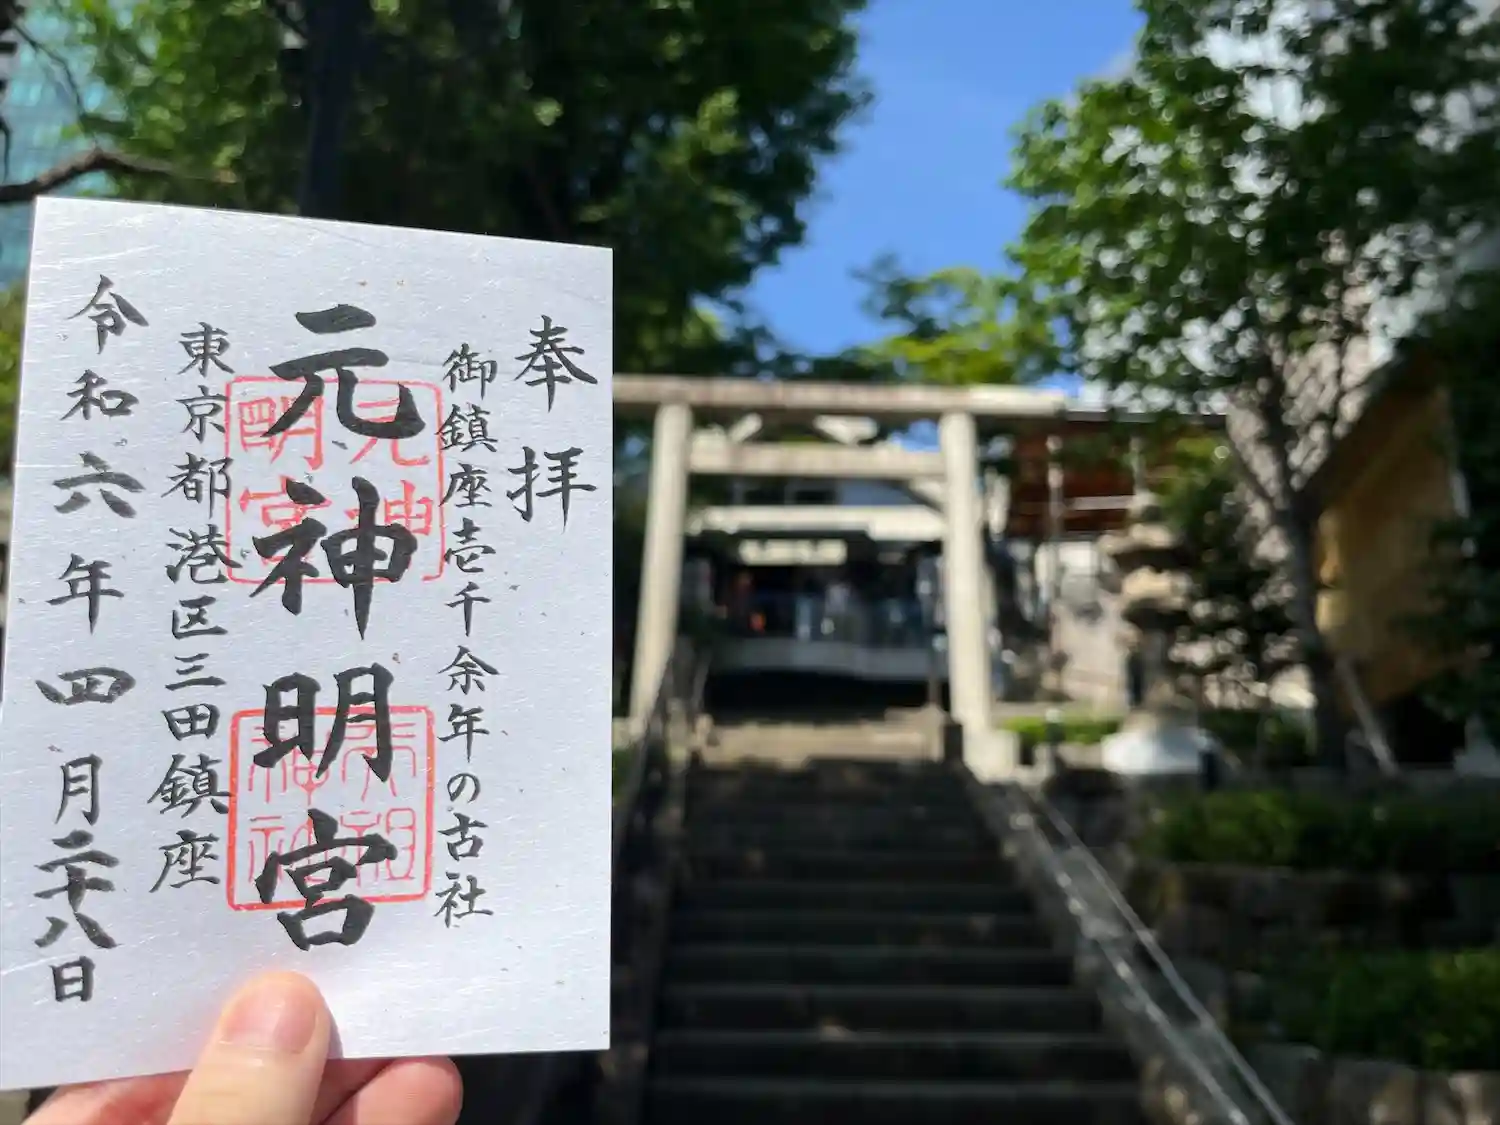 奉拝
御鎮座壱千余年の古社
元神明宮
東京都港区三田鎮座
令和六年四月二十八日
元神
明宮